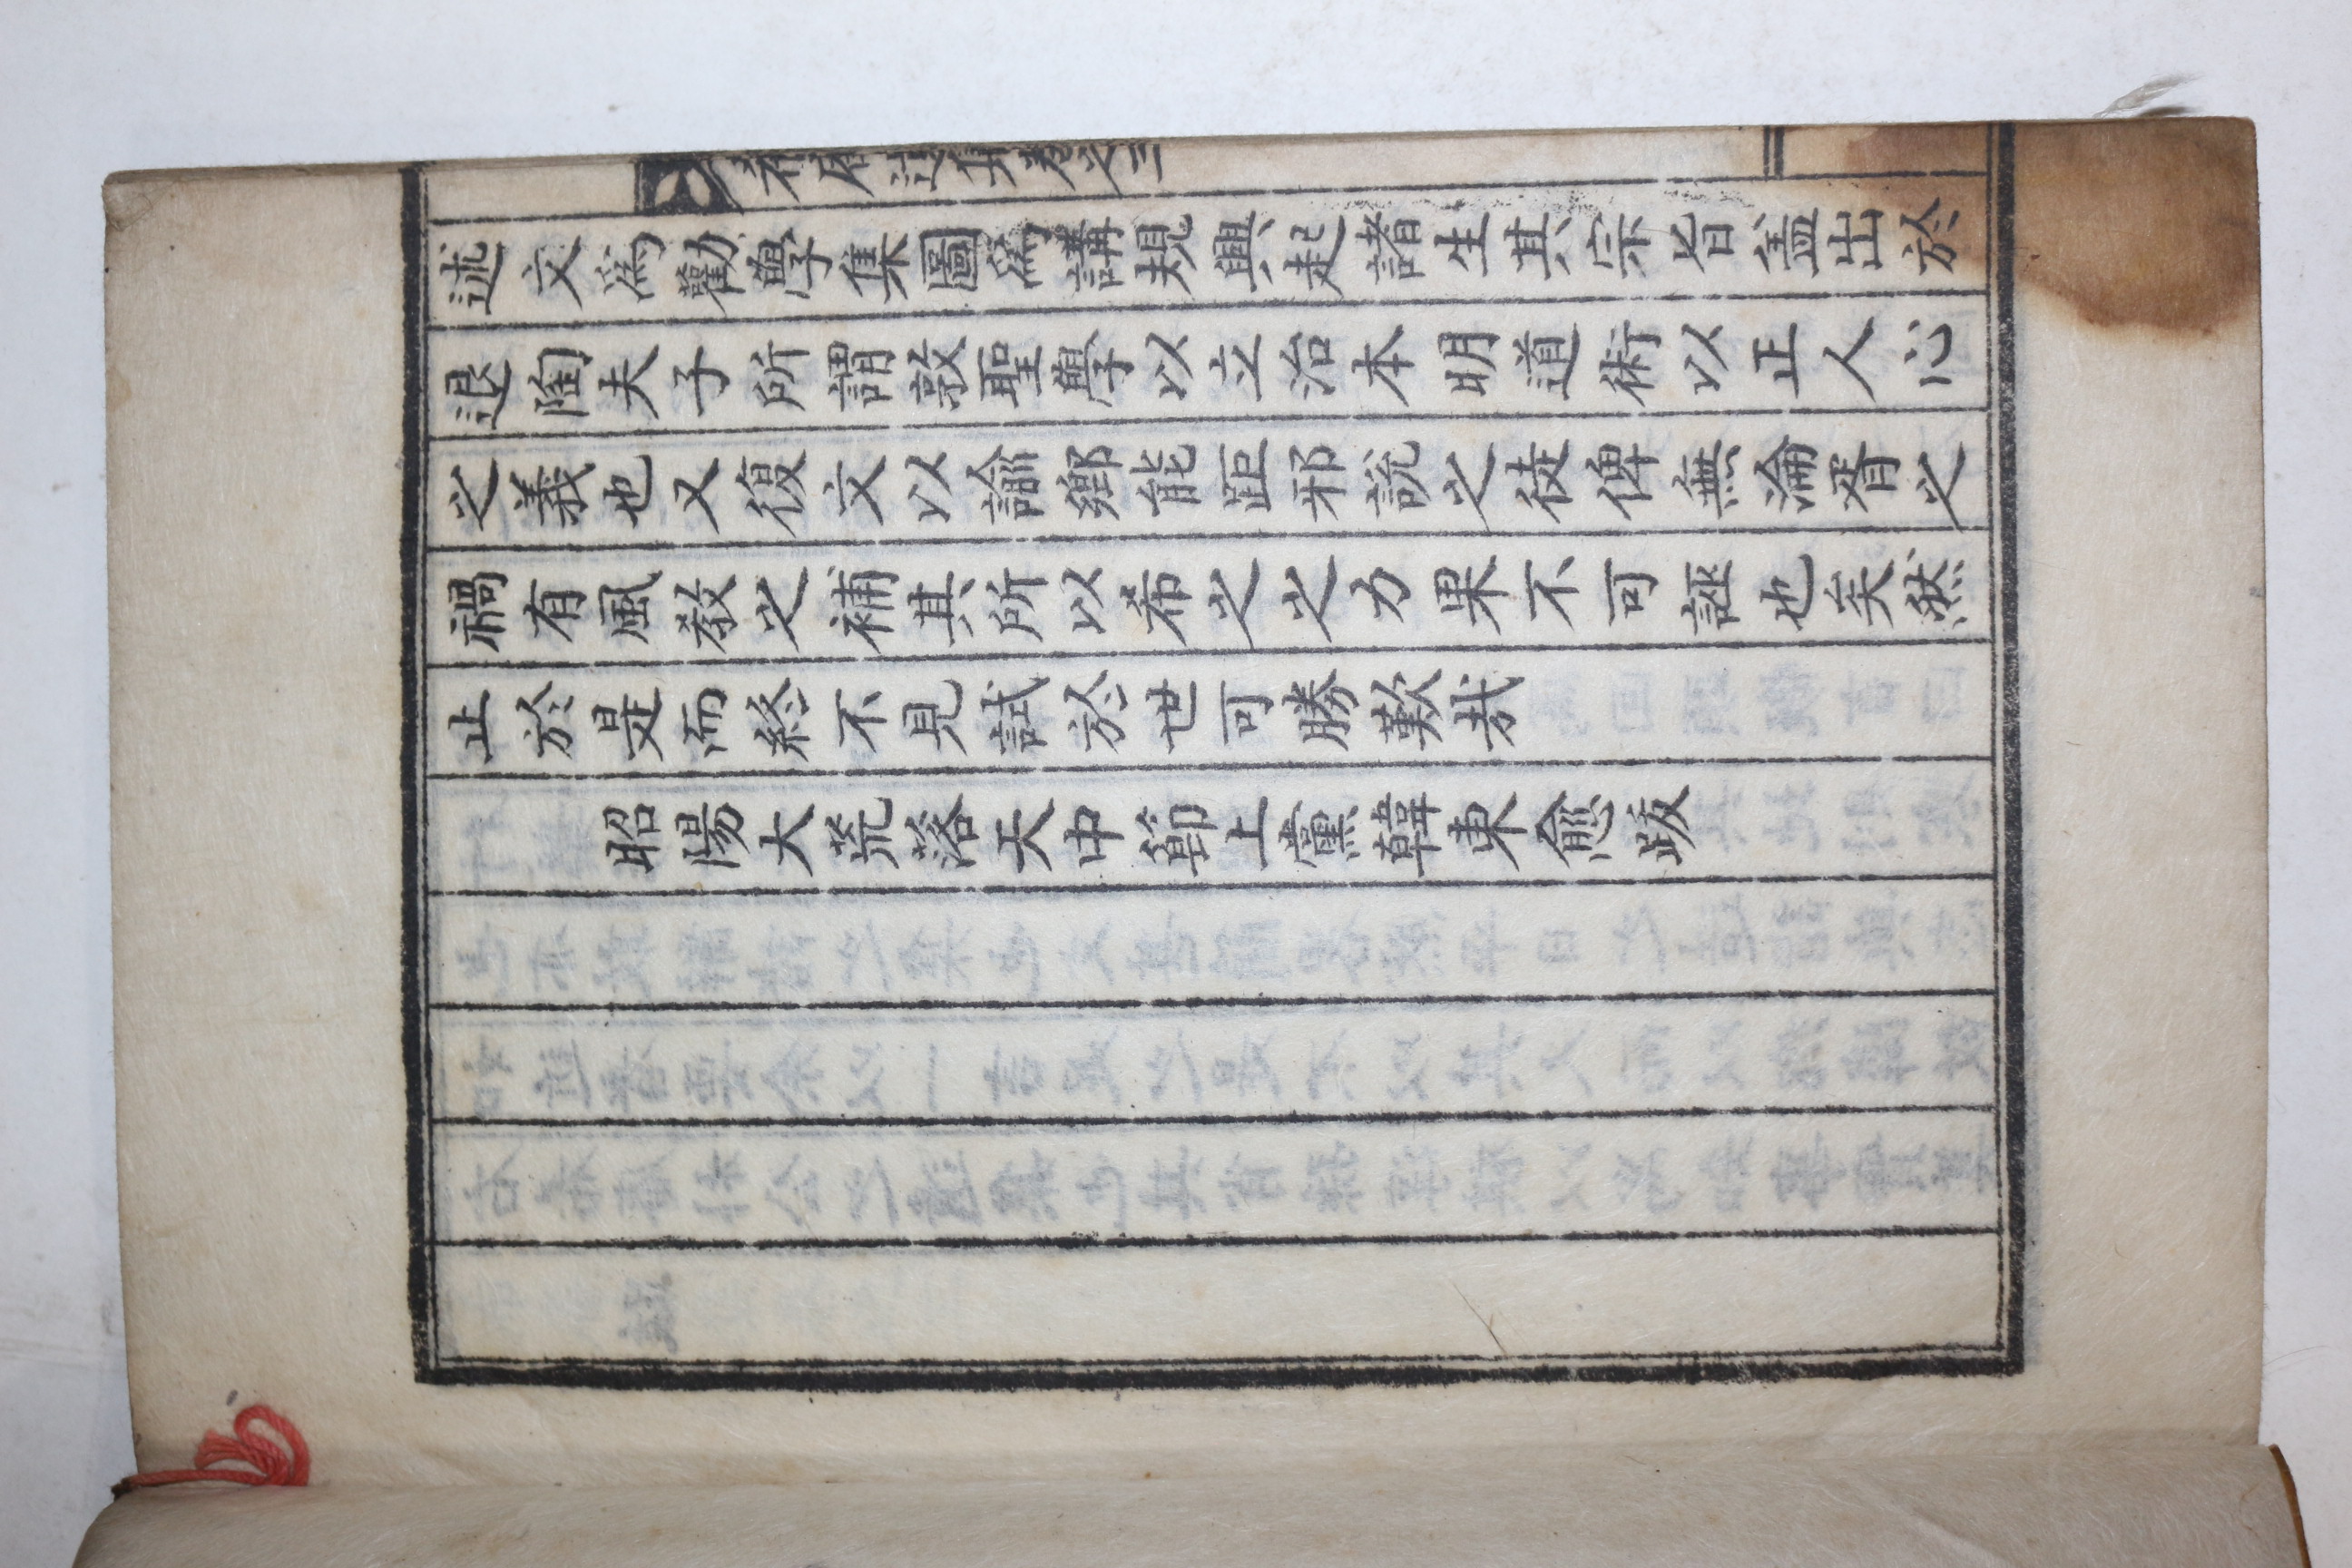 述文爲勸學集圖爲講規興起諸生其宗旨盖出於
退陶夫子所謂敦聖學以立治本明道術以正人心
之義也又復文以諭鄕能距邪說之徒俾無淪胥之
禍有風教之補其所以希之之力果不可誣也矣然
止於是而終不見試於世可勝歎哉
昭陽大荒落天中節上黨韓東愈跋